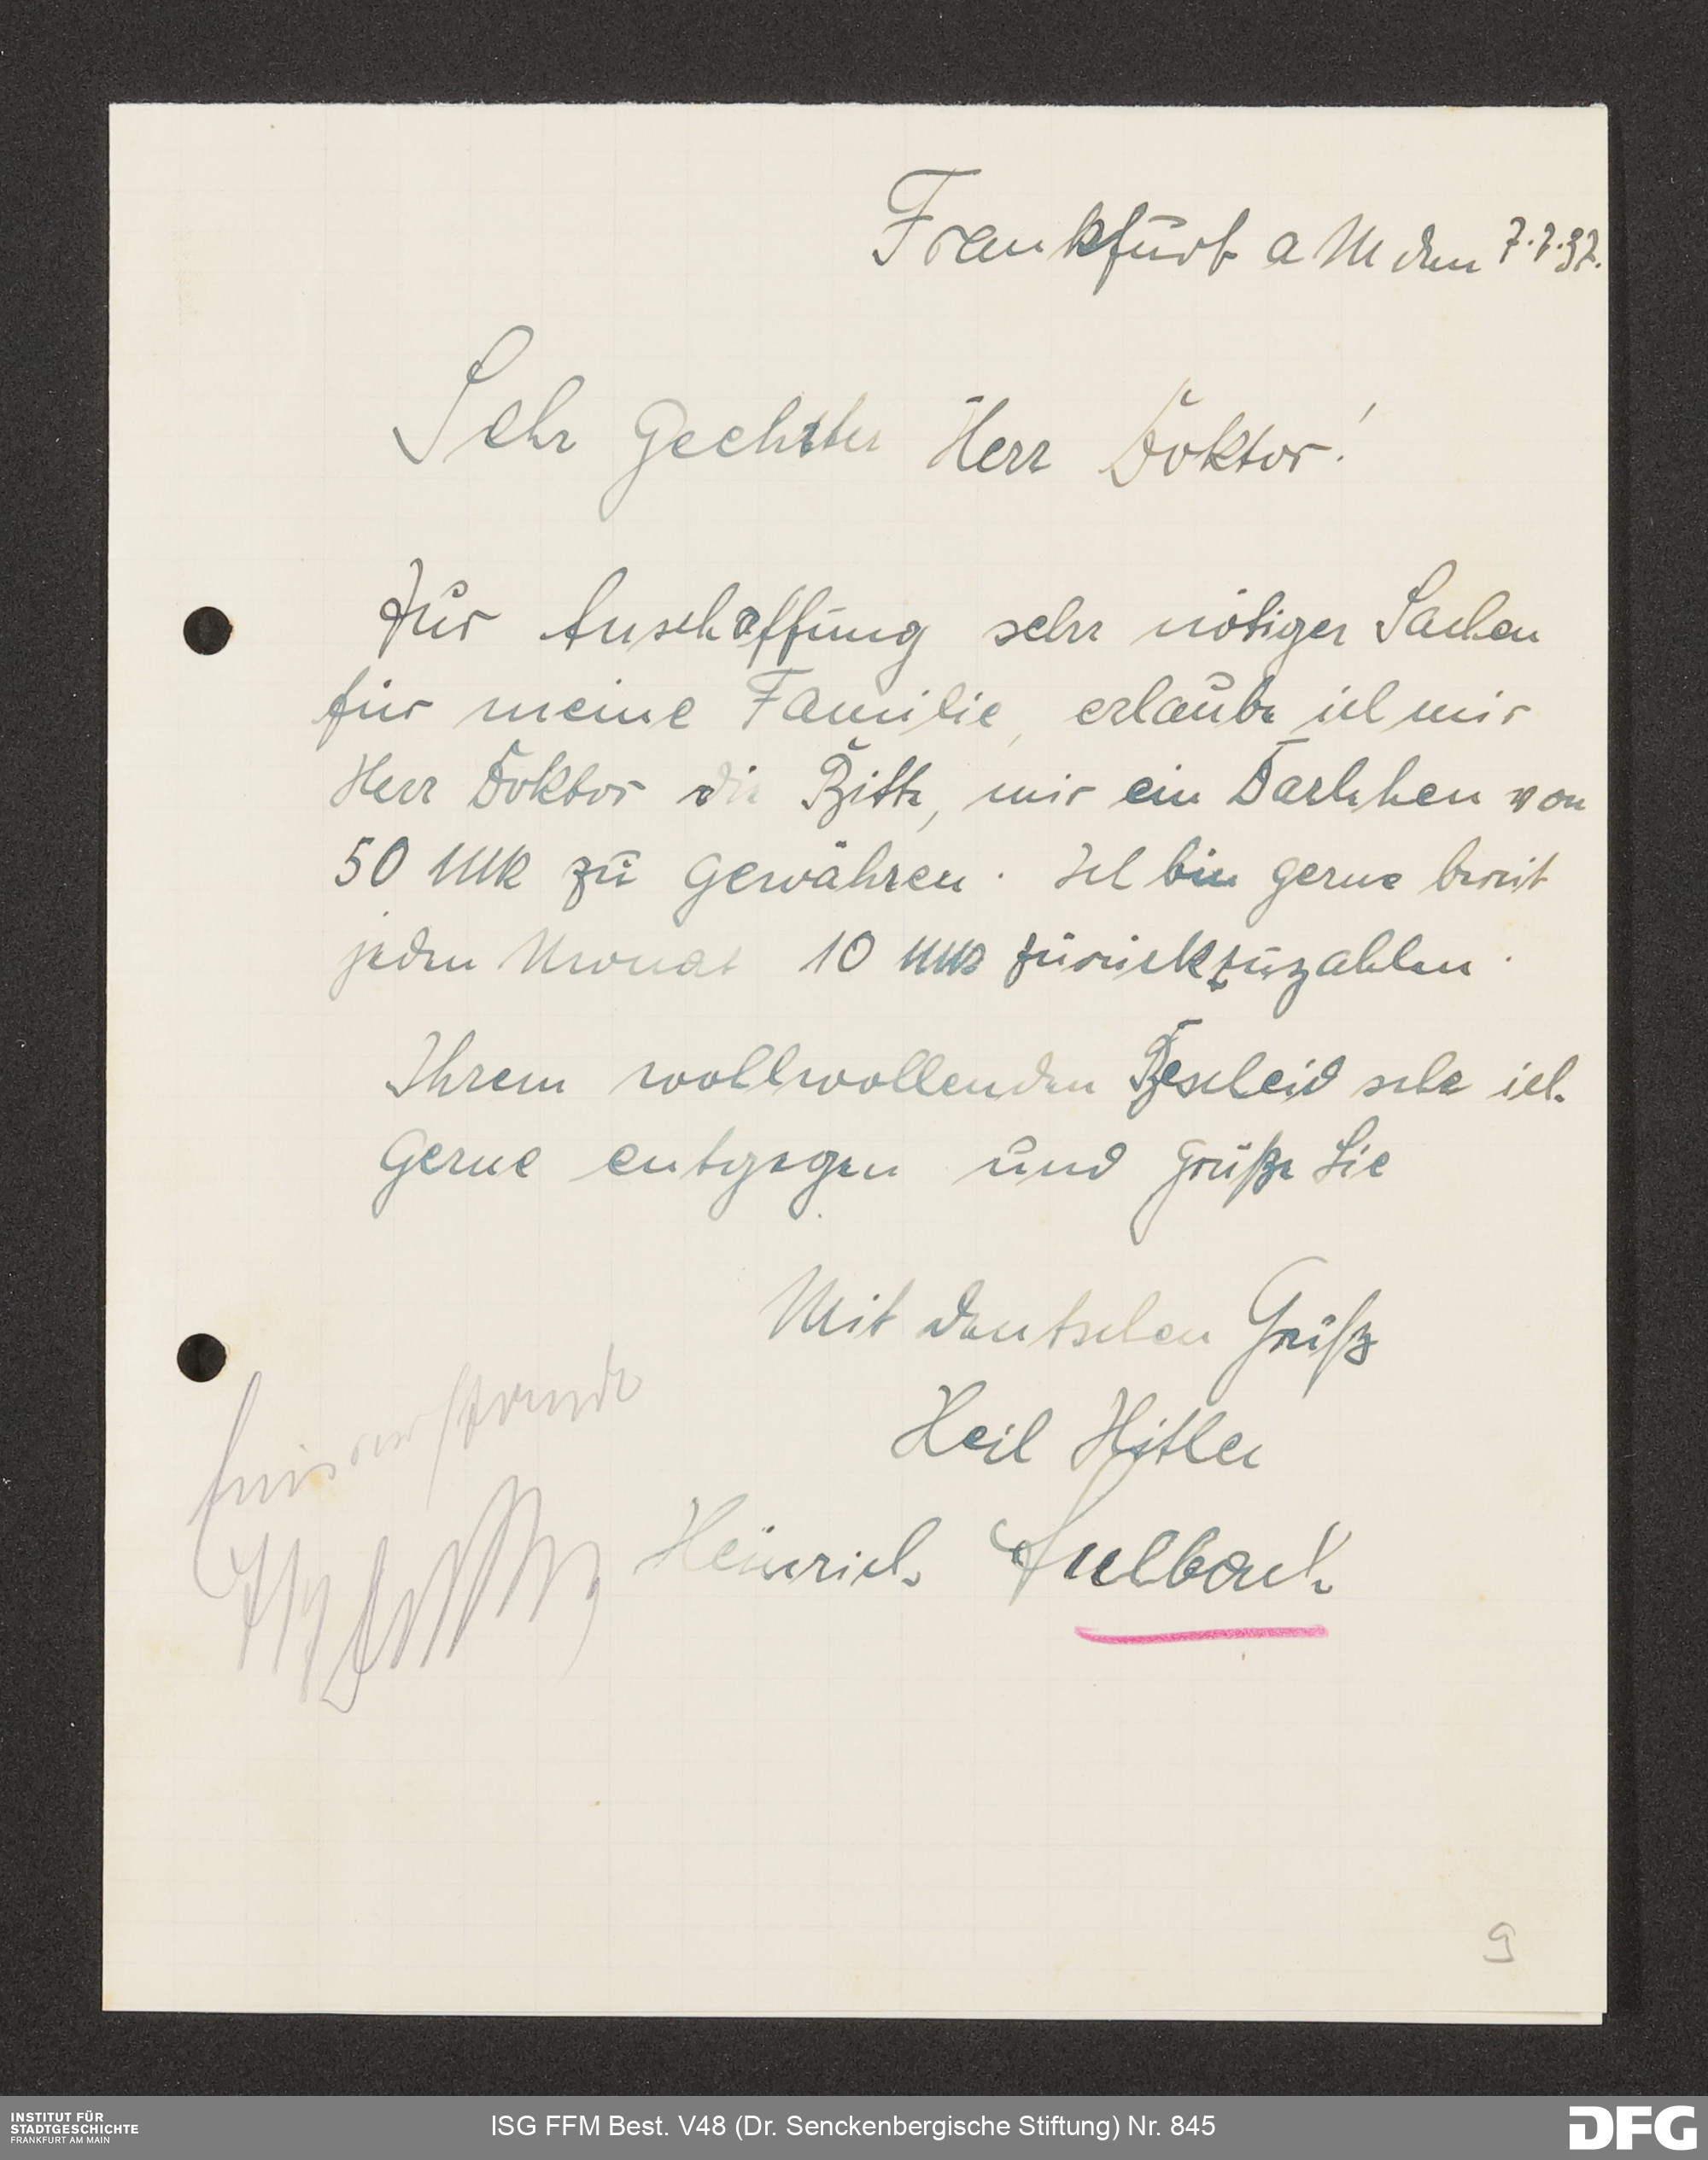 Frankfurt a M den 7.7.37.
Sehr geehrter Herr Doktor!
Zur Anschaffung sehr nötiger Sachen
für meine Familie, erlaube ich mir
Herr Doktor die Bitte, mir ein Darlehen von
50 MK zu gewähren. Ich bin gerne bereit
jeden Monat 10 MK zurückzuzahlen.
Ihrem wollwollenden Bescheid sehe ich
gerne entgegen und grüße Sie
Mit deutschen Gruß
Heil Hitler
Einverstanden
Heinrich Aulbach
9
INSTITUT FÜR
STADTGESCHICHTE
FRANKFURT AM MAIN
ISG FFM Best. V48 (Dr. Senckenbergische Stiftung) Nr. 845
DFG